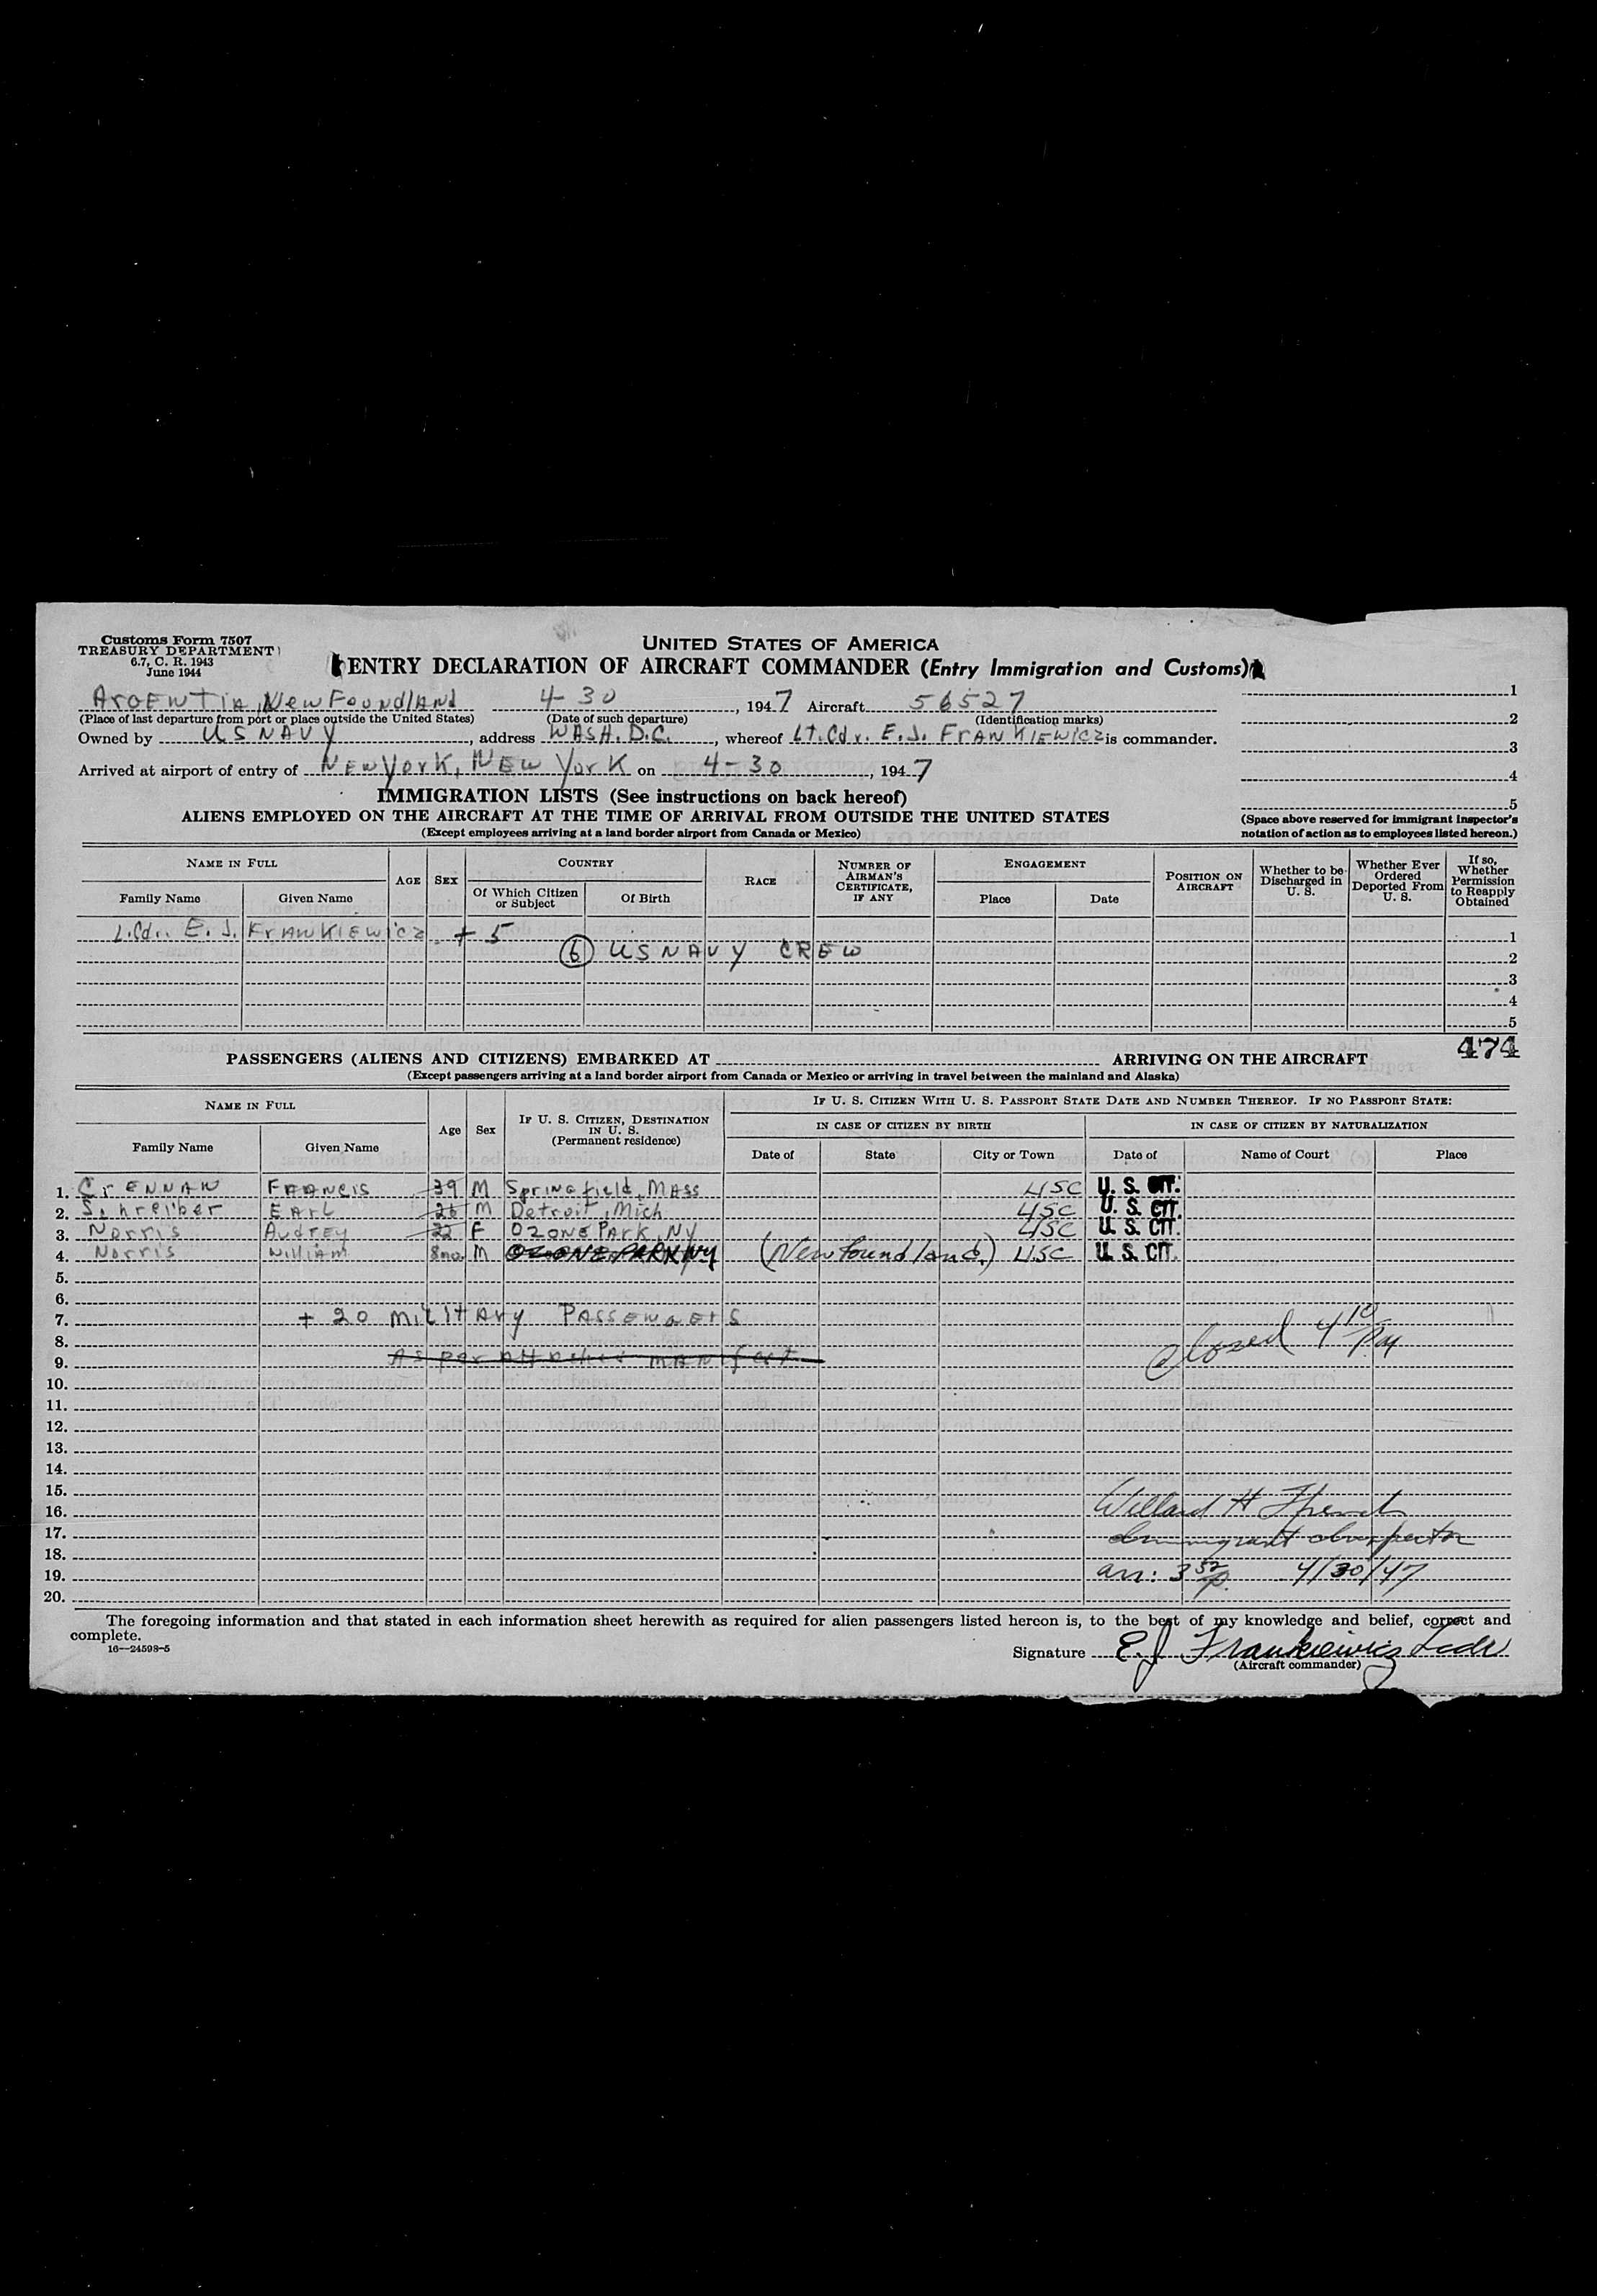 Customs Form 7507
TREASURY DEPARTMENT
6.7, C. R. 1943
June 1944
UNITED STATES OF AMERICA
ENTRY DECLARATION OF AIRCRAFT COMMANDER (Entry Immigration and Customs)
ArgENTIA, NewFoundlANd 4-30, 1947 Aircraft 56527
(Place of last departure from port or place outside the United States) (Date of such departure) (Identification marks)
Owned by US NAVY, address WASH. D.C., whereof Lt. Cdr. E. J. FrANKIEWICZ is commander.
Arrived at airport of entry of NEW York, NEW York on 4-30, 1947
1
2
3
4
5
(Space above reserved for immigrant inspector's
notation of action as to employees listed hereon.)
IMMIGRATION LISTS (See instructions on back hereof)
ALIENS EMPLOYED ON THE AIRCRAFT AT THE TIME OF ARRIVAL FROM OUTSIDE THE UNITED STATES
(Except employees arriving at a land border airport from Canada or Mexico)
NAME IN FULL
Family Name Given Name
AGE SEX
COUNTRY
Of Which Citizen or Subject Of Birth
RACE
NUMBER OF AIRMAN'S CERTIFICATE, IF ANY
ENGAGEMENT
Place Date
POSITION ON AIRCRAFT
Whether to be Discharged in U. S.
Whether Ever Ordered Deported From U. S.
If so, Whether Permission to Reapply Obtained
L. Cdr. E. J. FrANKIEWicz + 5 1
6 US NAVY CREW 2
3
4
5
474
PASSENGERS (ALIENS AND CITIZENS) EMBARKED AT ARRIVING ON THE AIRCRAFT
(Except passengers arriving at a land border airport from Canada or Mexico or arriving in travel between the mainland and Alaska)
NAME IN FULL
Family Name Given Name
Age Sex
IF U. S. CITIZEN, DESTINATION IN U. S. (Permanent residence)
IF U. S. CITIZEN WITH U. S. PASSPORT STATE DATE AND NUMBER THEREOF. IF NO PASSPORT STATE:
IN CASE OF CITIZEN BY BIRTH IN CASE OF CITIZEN BY NATURALIZATION
Date of State City or Town Date of Name of Court Place
1. CrENNAN FRANCIS 39 M Springfield, MASS USC U. S. CIT.
2. Schreiber EARL 26 M Detroit, Mich USC U. S. CIT.
3. Norris Audrey 22 F OZONE PArk, NY USC U. S. CIT.
4. Norris William 8mo. M OZONE PARK NY (Newfoundland.) USC U. S. CIT.
5.
6.
7. + 20 MilitAry PASSENgErS
8. Closed 4 10 PM
9. As per attached manifest
10.
11.
12.
13.
14.
15.
16. Willard H
17. Immigrant Inspector
18.
19. arr: 3 52 p. 4/30/47
20.
The foregoing information and that stated in each information sheet herewith as required for alien passengers listed hereon is, to the best of my knowledge and belief, correct and
complete.
16—24598-5
Signature E. J Frankiewicz Lcdr
(Aircraft commander)